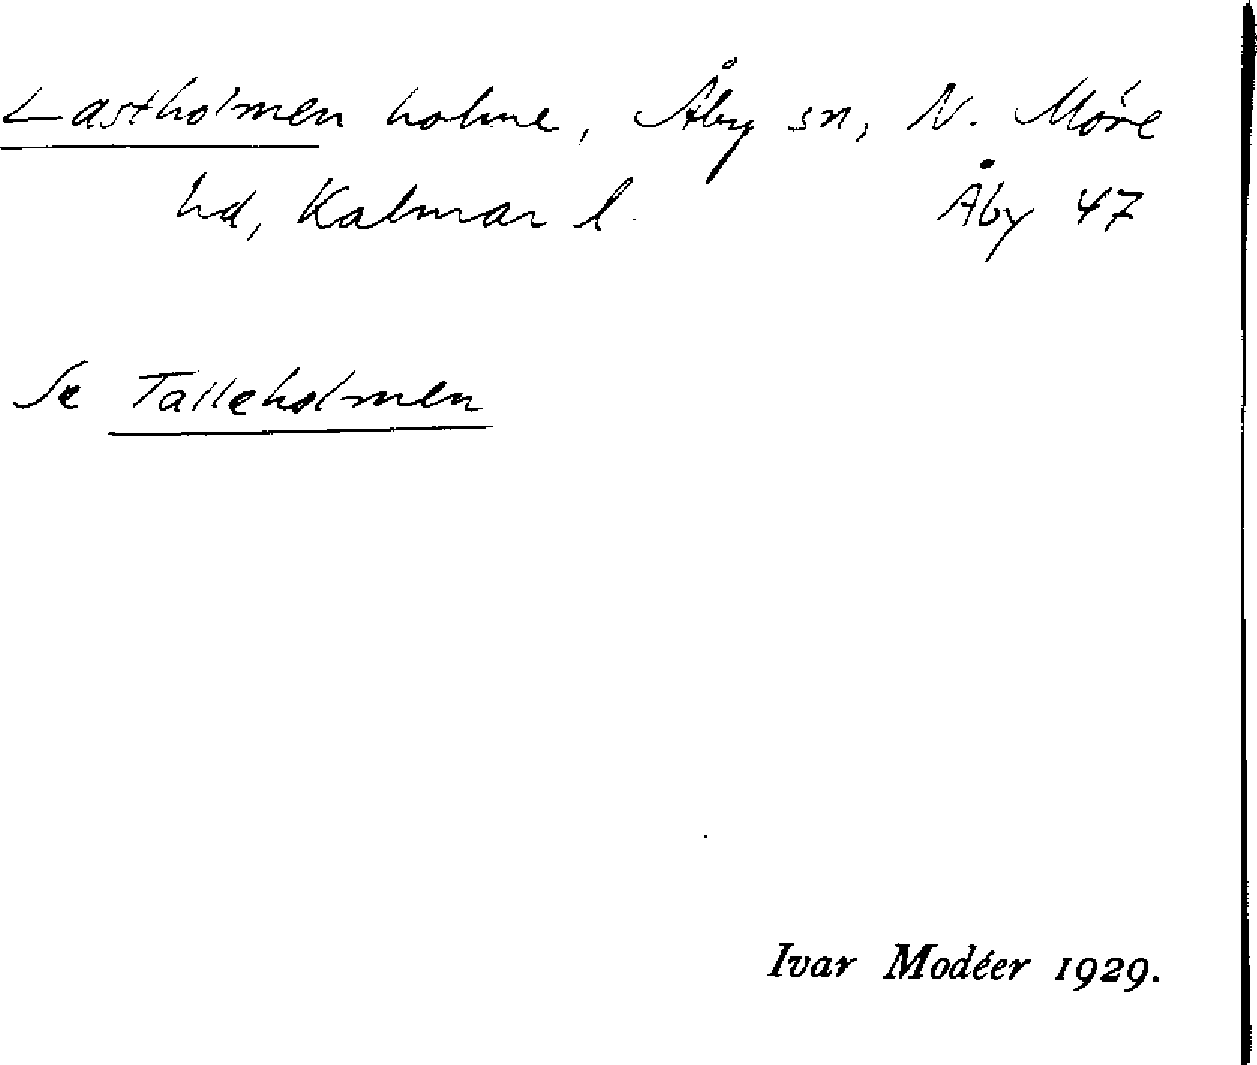 Lastholmen holme, Åby sn, N. Möre
hd, Kalmar l. Åby 47
Se Talleholmen
Ivar Modéer 1929.